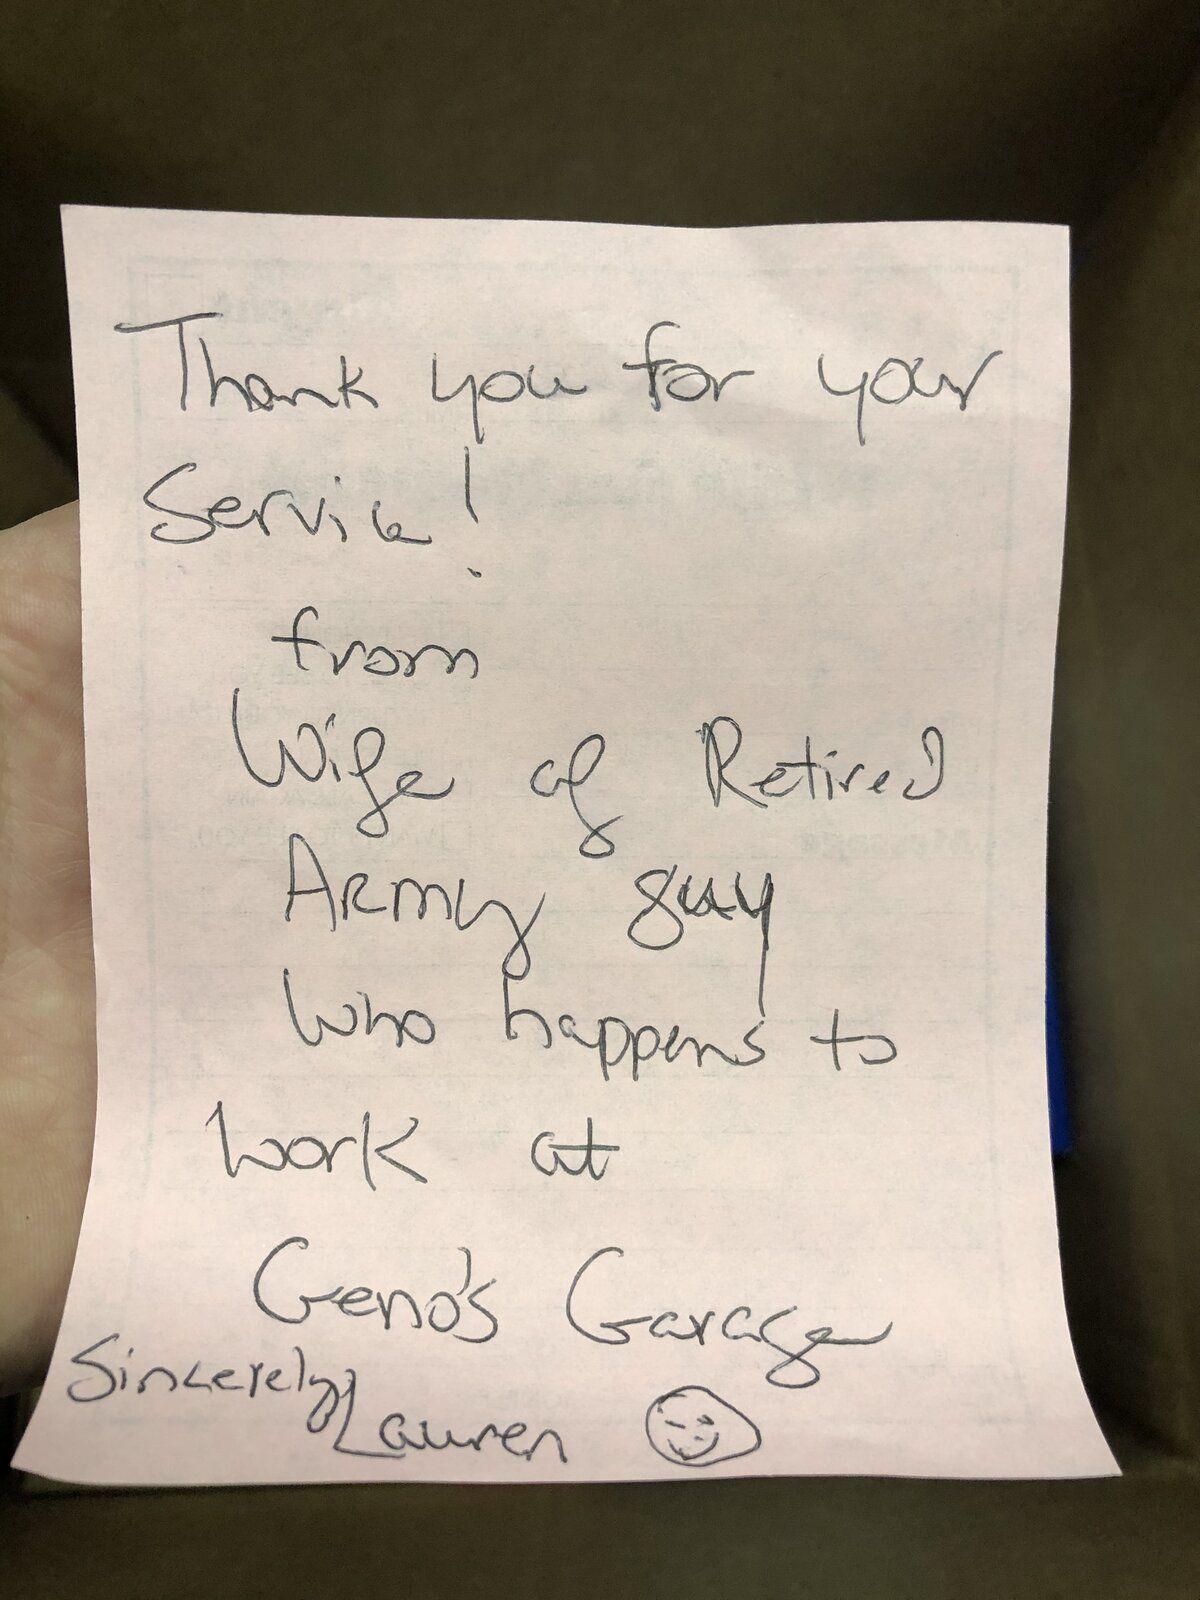 Thank you for your
Service!
from
Wife of Retired
Army guy
Who happens to
work at
Geno's Garage
Sincerely,
Lauren